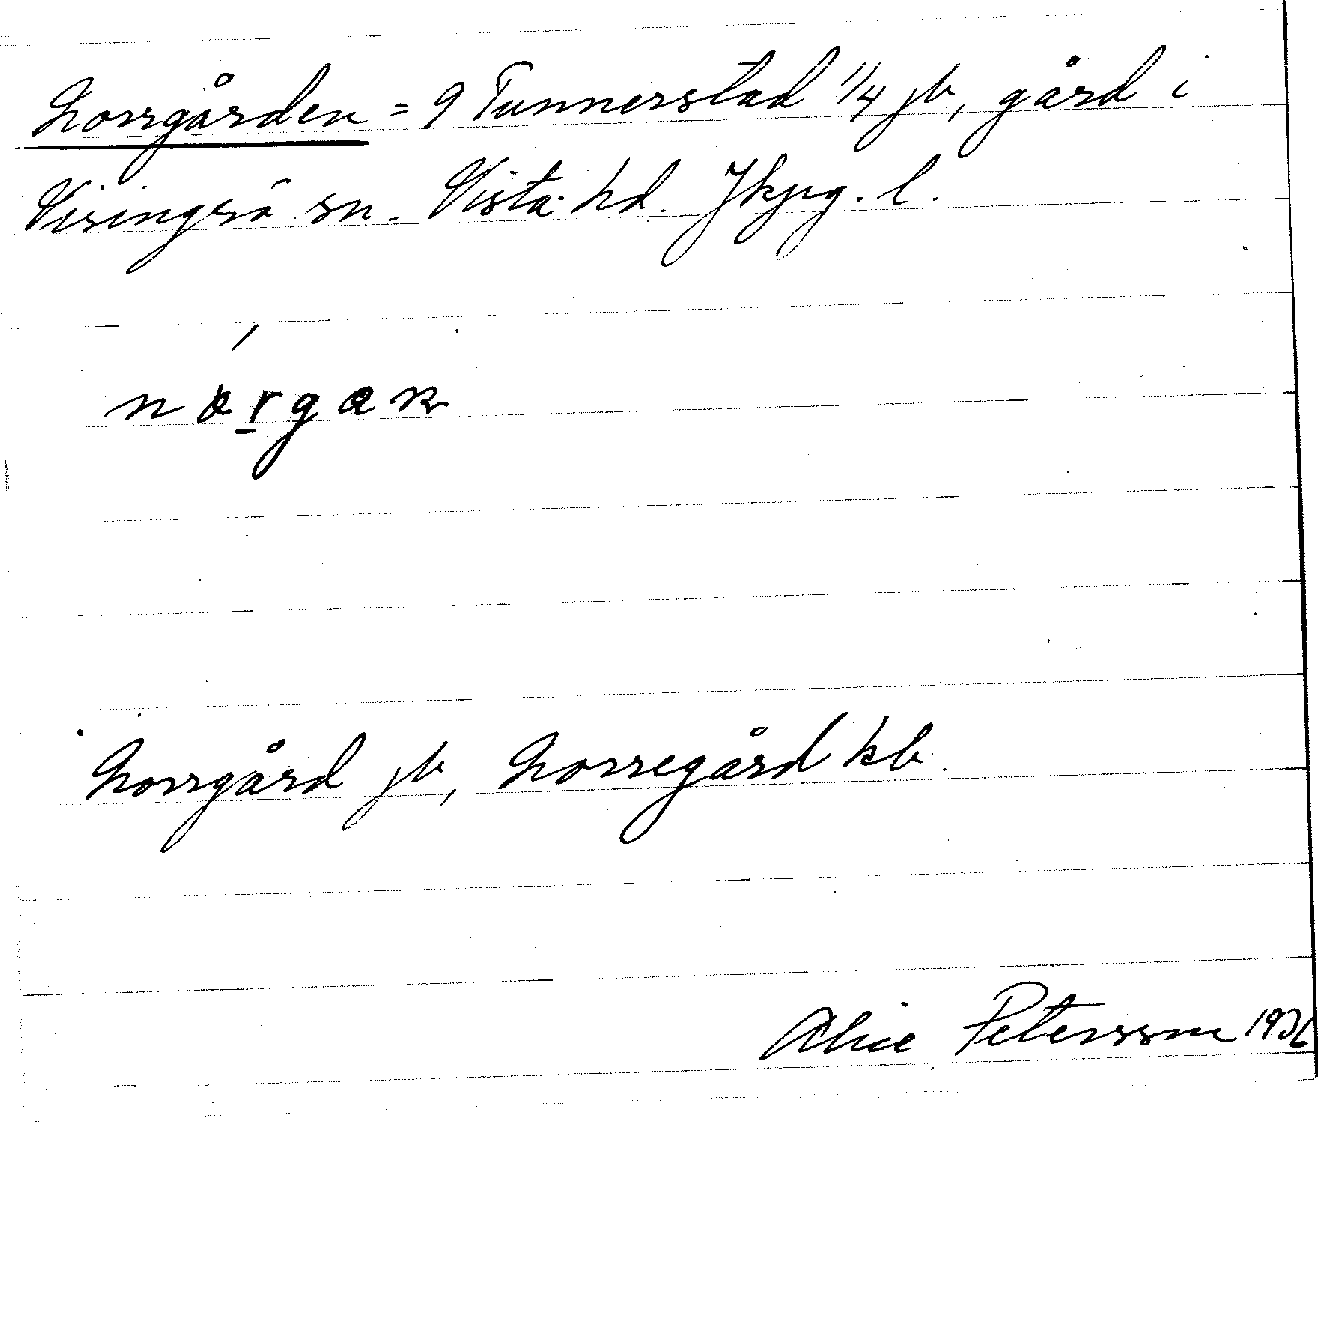 Norrgården = 9 Tunnerstad 1/4 jb, gård i
Visingsö sn. Vista hd. Jkpg. l.
Norrgård jb, Norregård kb.
Alice Petersson 1926